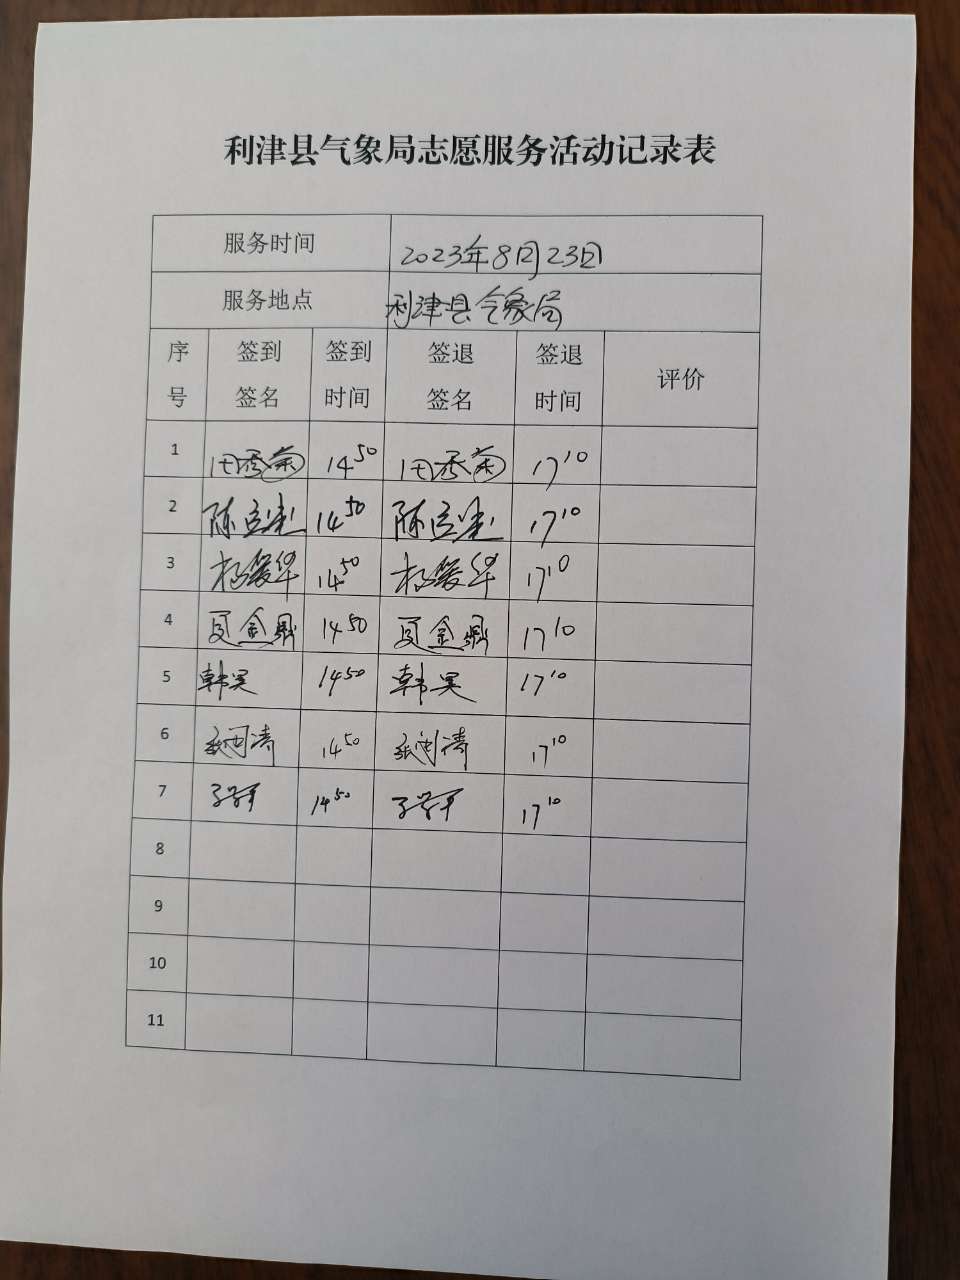 利津县气象局志愿服务活动记录表
服务时间 2023年8月23日
服务地点 利津县气象局
序号 签到签名 签到时间 签退签名 签退时间 评价
1 田秀菊 14 50 田秀菊 17 10
2 14 50 17 10
3 杨爱华 14 50 杨爱华 17 10
4 夏金鼎 14 50 夏金鼎 17 10
5 韩昊 14 50 韩昊 17 10
6 14 50 17 10
7 14 50 17 10
8
9
10
11